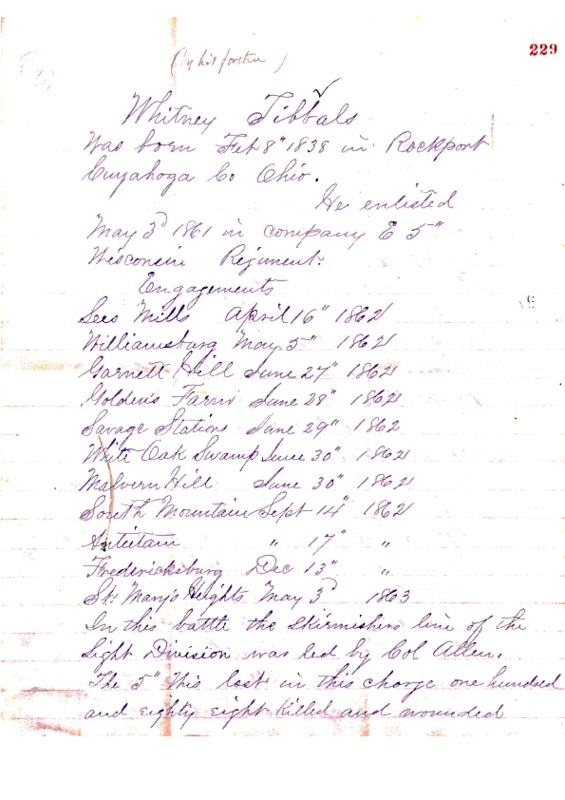 229
(by his      )
Whitney Tibbals
Was born Feb 8" 1838 in Rockport
Cuyahoga Co Ohio.
He enlisted
May 3d 1861 in company E 5"
Wisconsin Regiment.
Engagements
Lees Mills April 16" 1862
Williamsburg May 5" 1862
Garnett Hill June 27" 1862
Goldens Farm June 28" 1862
Savage Stations June 29" 1862
White Oak Swamp June 30" 1862
Malvern Hill June 30" 1862
South Mountain Sept 14" 1862
Antietam " 17" "
Fredericksburg Dec 13" "
St. Mary's Heights May 3d 1863
In this battle the Skirmishers line of the
Light Division was led by Col Allen.
The 5" Wis lost in this charge one hundred
and eighty eight killed and wounded